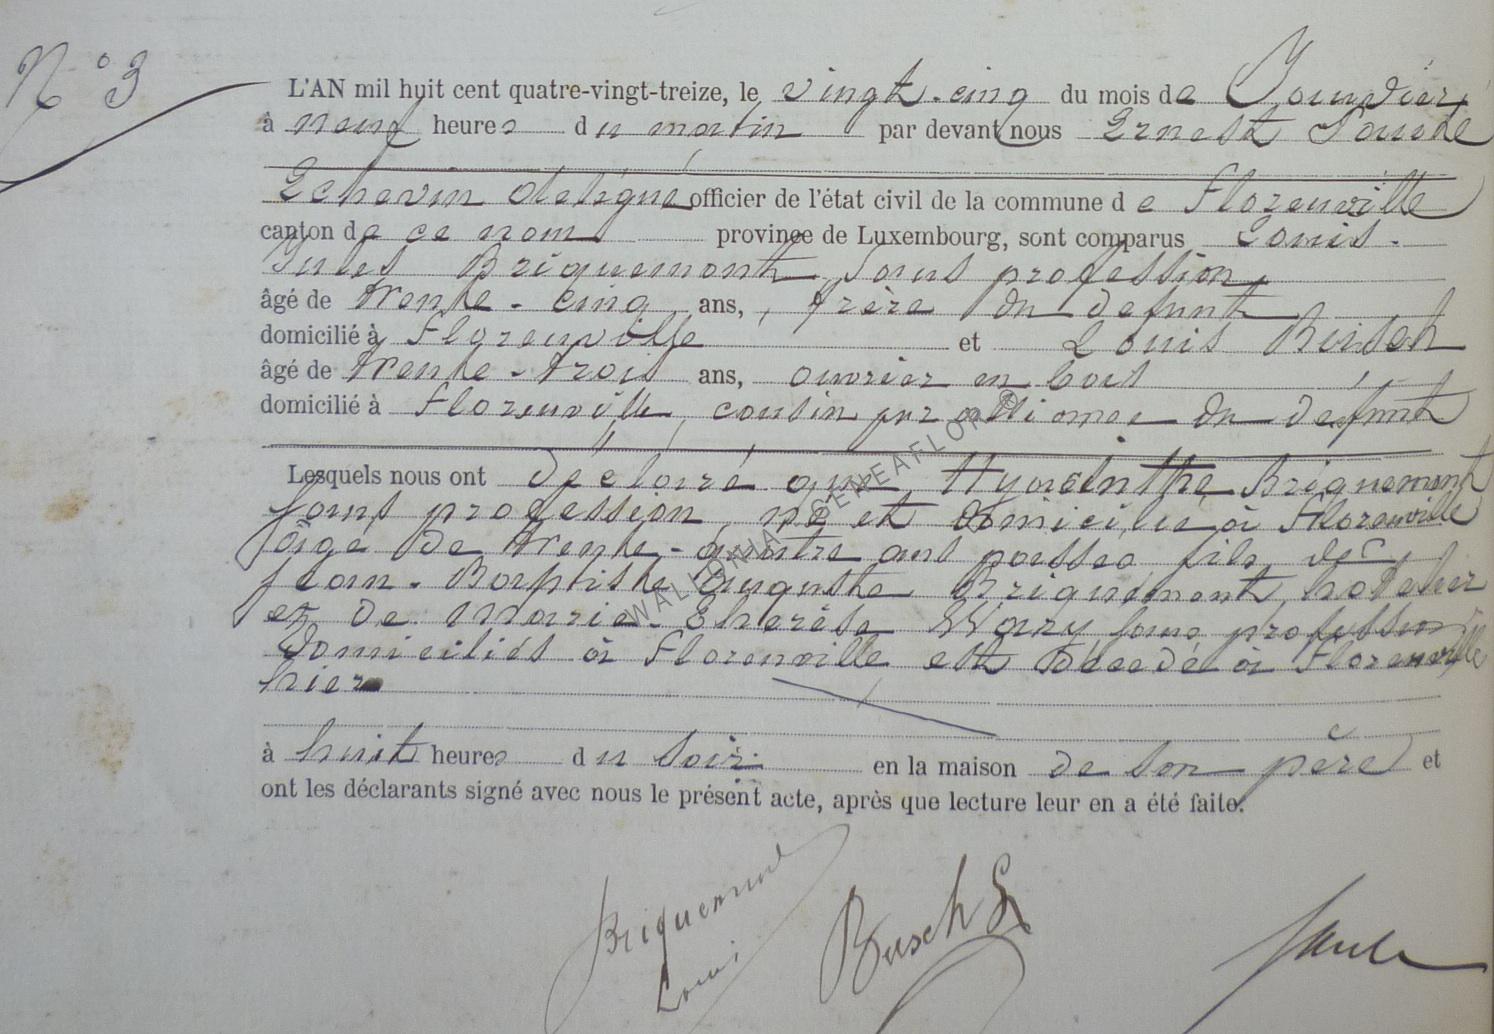 N° 3
L'AN mil huit cent quatre-vingt-treize, le vingt-cinq du mois de Janvier
à neuf heures du matin par devant nous Ernest
Echevin délégué officier de l'état civil de la commune de Florenville
canton de ce nom province de Luxembourg, sont comparus Louis-
Jules Briquemont, sans profession,
âgé de trente-cinq ans, frère du défunt
domicilié à Florenville et Louis Busch
âgé de trente-trois ans, ouvrier en bois
domicilié à Florenville, cousin par alliance du défunt
Lesquels nous ont déclaré que Hyacinthe Briquemont
sans profession, né et domicilié à Florenville
âgé de trente-quatre ans passés, fils de
Jean-Baptiste Auguste Briquemont, hôtelier
et de Marie-Thérèse Wary sans profession
domiciliés à Florenville est décédé à Florenville
hier
à huit heures du soir en la maison de son père et
ont les déclarants signé avec nous le présent acte, après que lecture leur en a été faite.
Briquemont
Louis
Busch L
WALLONIA GENEAFLOR